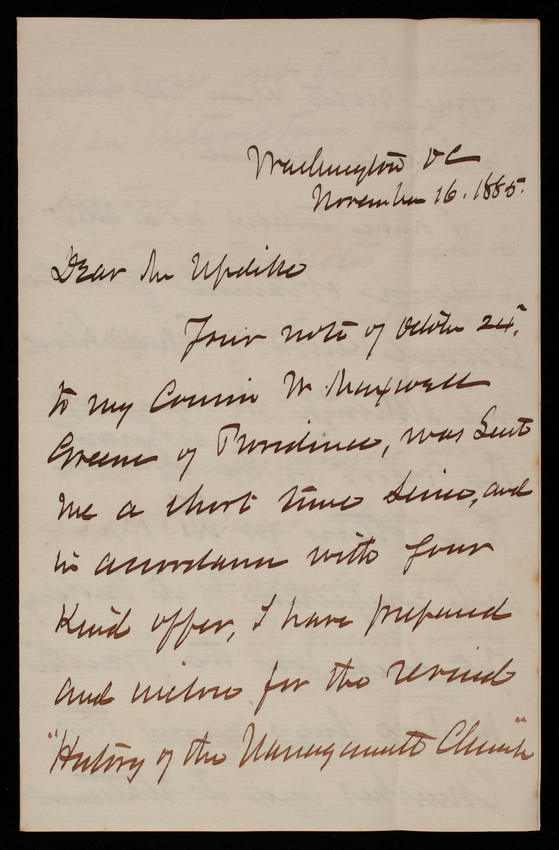 Washington DC
November 16. 1885.
Dear Mr Updike
Your note of October 24th
to my Cousin W. Maxwell
Greene of Providence, was sent
me a short time since, and
in accordance with your
kind offer, I have prepared
and inclose for the revised
"History of the Narragansett Church"